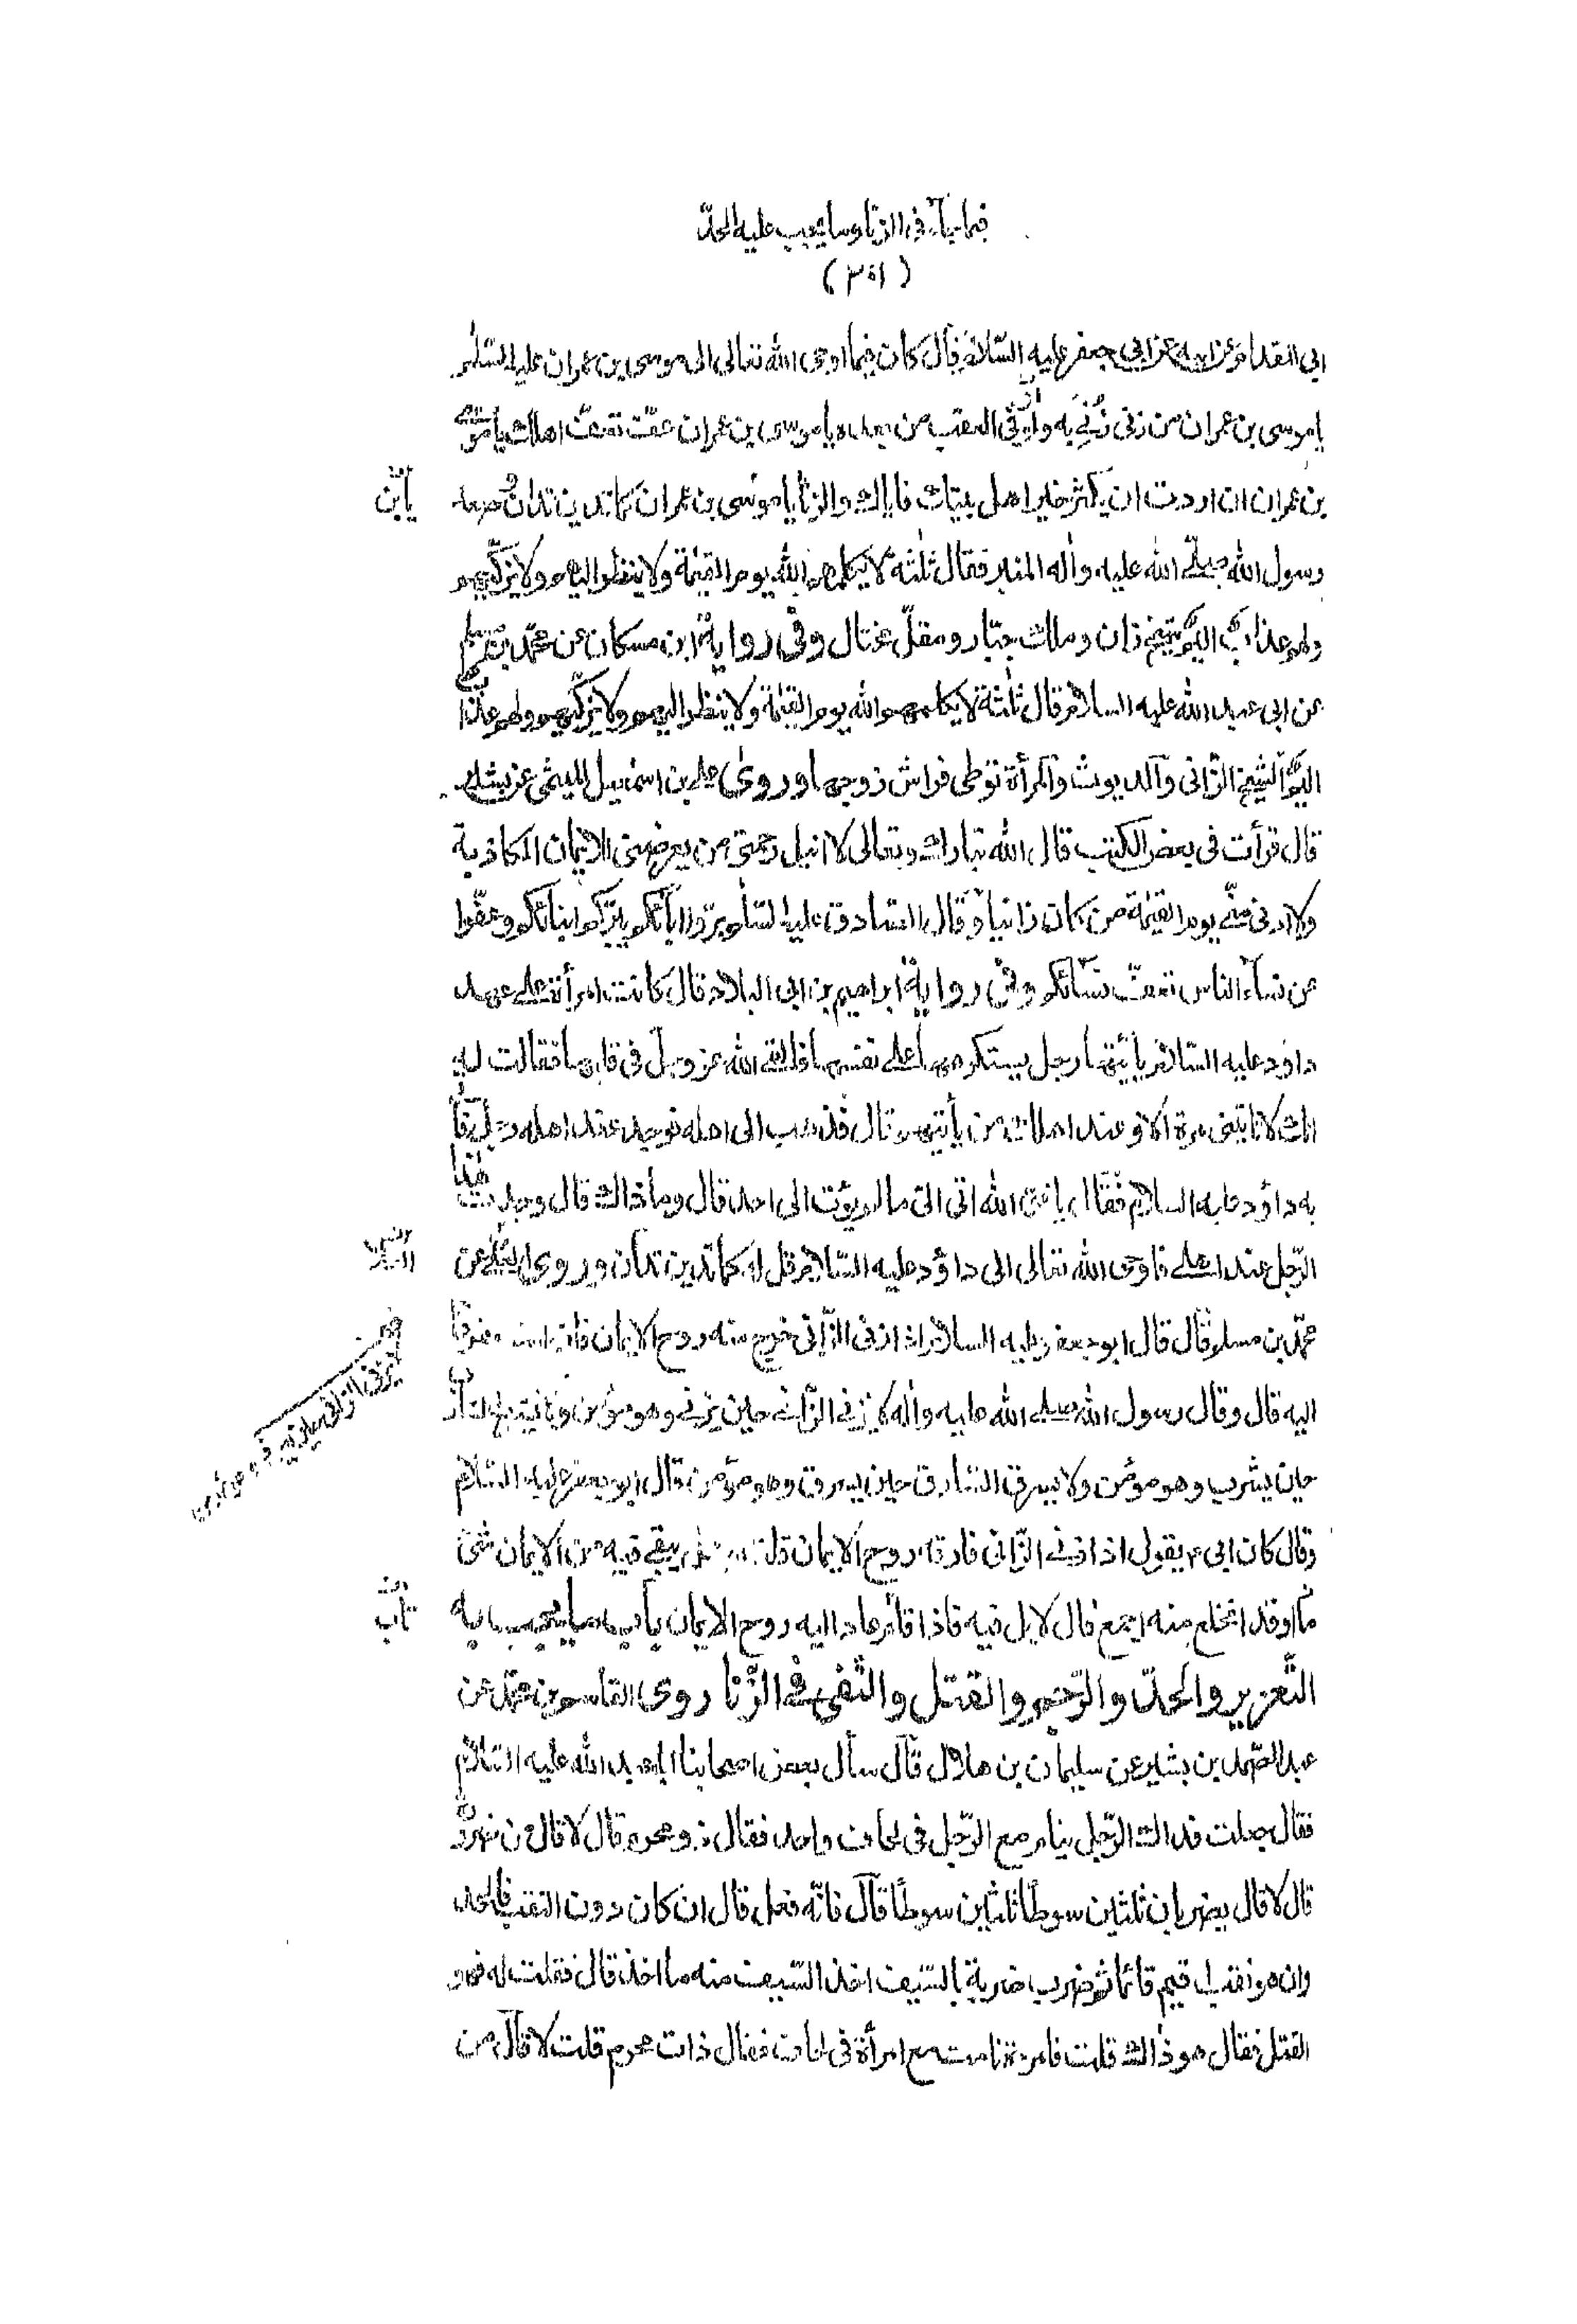 فيما جاء فی الزنا وما یجب علیه الحدّ
(٣٥١)
ابی المقدام عن ابیه عن ابی جعفر علیه السّلام قال کان فیما اوحی الله تعالی الی موسی بن عمران علیه السّلم
یا موسی بن عمران من زنی زُنِیَ به ولو فی العقب من بعده یا موسی بن عمران عفّ تعفّ اهلك یا موسی
بن عمران ان اردت ان یکثر خیر اهل بیتك فایاك والزنا یا موسی بن عمران کما تدین تدان وصعد
رسول الله صلی الله علیه واله المنبر فقال ثلثة لا یکلمهم الله یوم القیمة ولا ینظر الیهم ولا یزکّیهم
ولهم عذاب الیم شیخ زان وملك جبّار ومقلّ مختال وفی روایة ابن مسکان عن محمّد بن مسلم
عن ابی عبد الله علیه السلام قال ثلثة لا یکلمهم الله یوم القیمة ولا ینظر الیهم ولا یزکّیهم ولهم عذاب
الیم الشیخ الزّانی والدیوث والمرأة توطی فراش زوجها وروی علی بن اسمعیل المیثمی عن بشیر
قال قرأت فی بعض الکتب قال الله تبارك وتعالی لا انیل رحمتی من یعرضنی للایمان الکاذبة
ولا ادنی منّی یوم القیمة من کان زانیا وقال الصادق علیه السّلم برّوا اٰبائکم یبرّکم ابنائکم وعفّوا
عن نساء الناس تعفّ نسائکم وفی روایة ابراهیم بن ابی البلاد قال کانت امرأة علی عهد
داؤد علیه السّلام یأتیها رجل یستکرهها علی نفسها فالقی الله عز وجلّ فی قلبها فقالت له
انك لا تاتینی مرة الا وعند اهلك من یأتیهم قال فذهب الی اهله فوجد عند اهله رجلا فاتی
به داؤد علیه السلام فقال یا نبی الله اتی الیّ ما لم یؤت الی احد قال وما ذاك قال وجدت هذا
الرّجل عند اهلی فاوحی الله تعالی الی داؤد علیه السّلام قل له کما تدین تدان وروی العلاء عن
محمّد بن مسلم قال قال ابو جعفر علیه السلام اذا زنی الزّانی خرج منه روح الایمان فان
الیه قال وقال رسول الله صلی الله علیه واله لا یزنی الزّانی حین یزنی وهو مؤمن ولا
حین یشرب وهو مؤمن ولا یسرق السّارق حین یسرق وهو مؤمن قال ابو جعفر علیه السّلام
وقال کان ابی ع یقول اذا زنی الزّانی فارقه روح الایمان قلت یبقی فیه من الایمان شئ
ما او قد انخلع منه اجمع قال لا بل فیه فاذا قام عاد الیه روح الایمان باب ما یجب به
التّعزیر والحدّ والرّجم والقتل والنّفی فی الزّنا روی القاسم بن محمّد عن
عبد الصّمد بن بشیر عن سلیمان بن هلال قال سأل بعض اصحابنا ابا عبد الله علیه السّلام
فقال جعلت فداك الرّجل ینام مع الرّجل فی لحاف واحد فقال ذو محرم قال لا قال من ضرورة
قال لا قال یضربان ثلثین سوطًا ثلثین سوطًا قال فانّه فعل قال ان کان دون الثقب فالحد
وان هو ثقب اقیم قائما ثم ضرب ضربة بالسّیف اخذ السّیف منه ما اخذ قال فقلت له فهو
القتل فقال هو ذاك قلت فامرءة نامت مع امرأة فی لحاف فقال ذات محرم قلت لا قال من